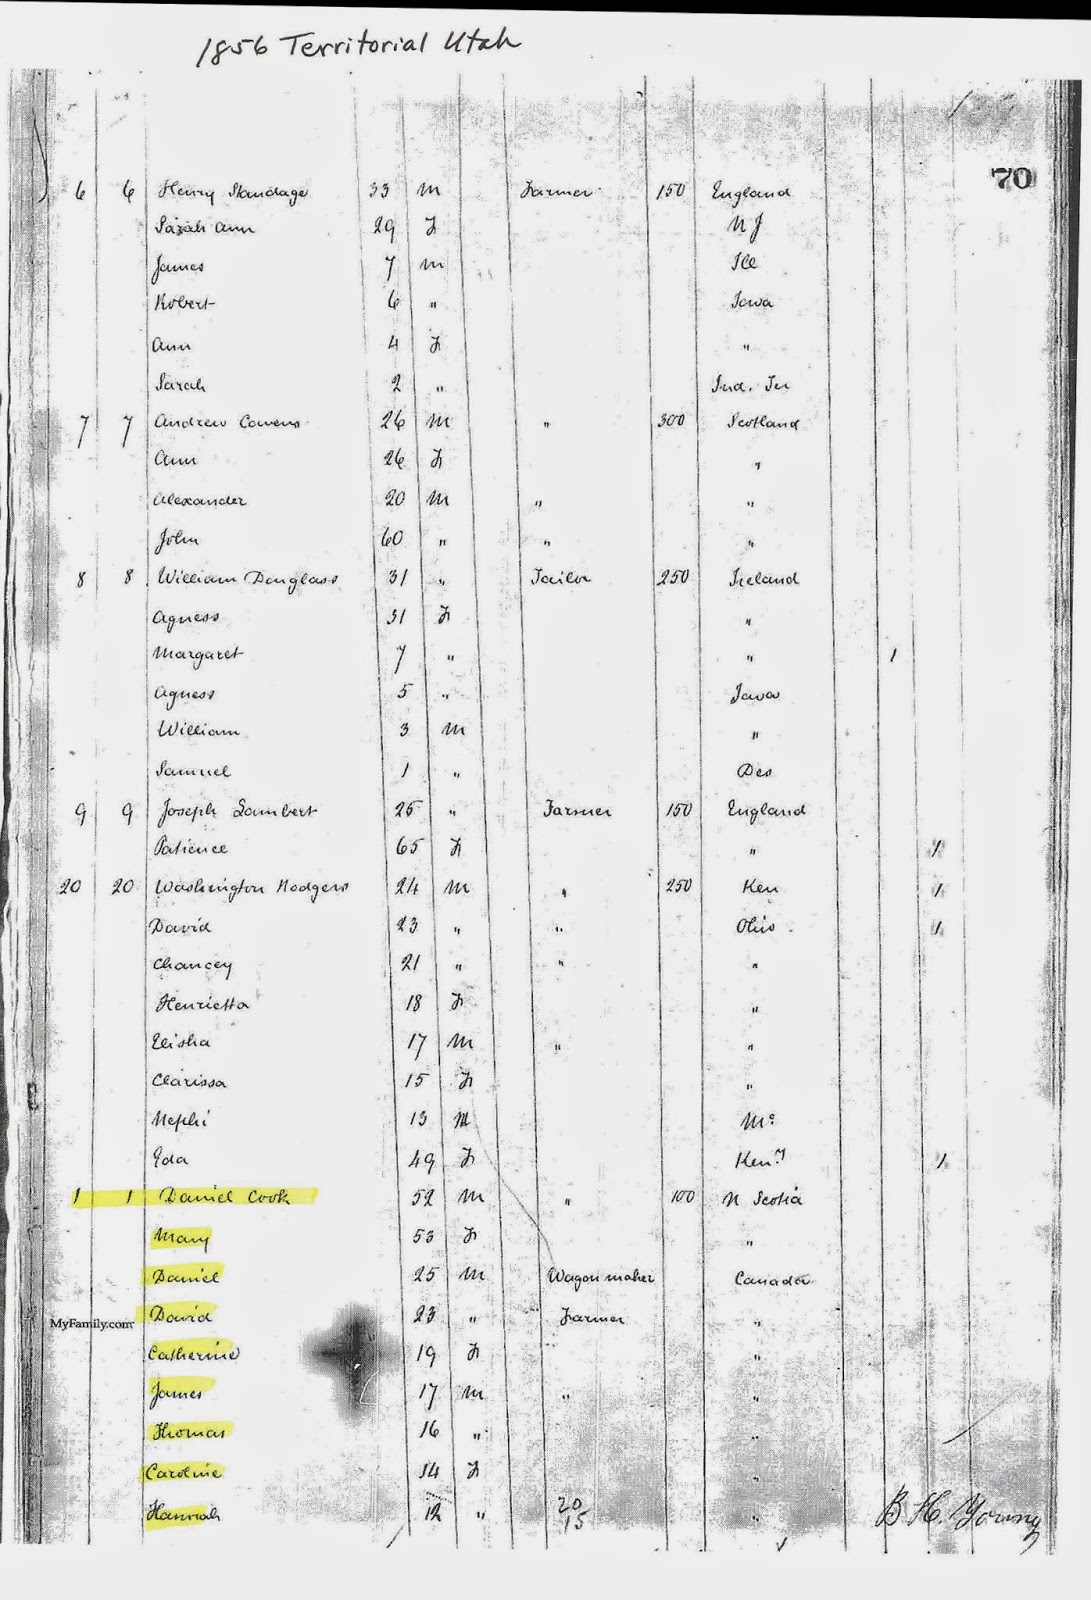 1856 Territorial Utah
70
6 6 Henry Standage 33 M Farmer 150 England
Sarah Ann 29 F N J
James 7 M Ill
Robert 6 " Iowa
Ann 4 F "
Sarah 2 " Ind. Ter
7 7 Andrew Cowens 26 M " 300 Scotland
Ann 26 F "
Alexander 20 M " "
John 60 " " "
8 8 William Douglass 31 " Tailor 250 Ireland
Agness 31 F "
Margaret 7 " " 1
Agness 5 " Iowa
William 3 M "
Samuel 1 " Des
9 9 Joseph Lambert 25 " Farmer 150 England
Patience 65 F " 1
20 20 Washington Hodgers 24 M " 250 Ken 1
David 23 " " Ohio 1
Chancey 21 " " "
Henrietta 18 F "
Elisha 17 M " "
Clarissa 15 F "
Nephi 13 M Mo
Eda 49 F Keny 1
1 1 Daniel Cook 52 M " 100 N Scotia
Mary 53 F "
Daniel 25 M Wagon maker Canada
David 23 " Farmer "
MyFamily.com
Catherine 19 F "
James 17 M " "
Thomas 16 " "
Caroline 14 F "
Hannah 12 " "
20
15
B H. Young